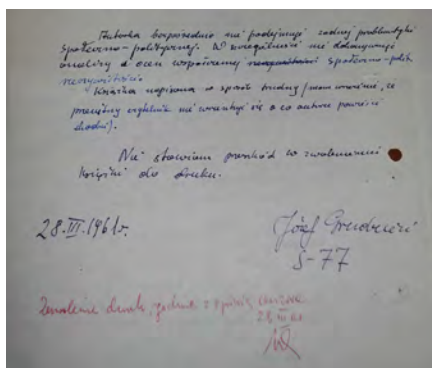 Autorka bezpośrednio nie podejmuje żadnej problematyki
społeczno-politycznej. W szczególności nie dokonywuje
analizy i ocen współczesnej społeczno-polit.
rzeczywistości.
Książka napisana w sposób trudny (mam wrażenie, że
przeciętny czytelnik nie zorientuje się o co autorce powieści
chodzi).
Nie stawiam przeszkód w zwolnieniu
książki do druku.
28.III.1961r.
Józef
S-77
Zezwolenie druku, zgodnie z opinią cenzora
28 III 61